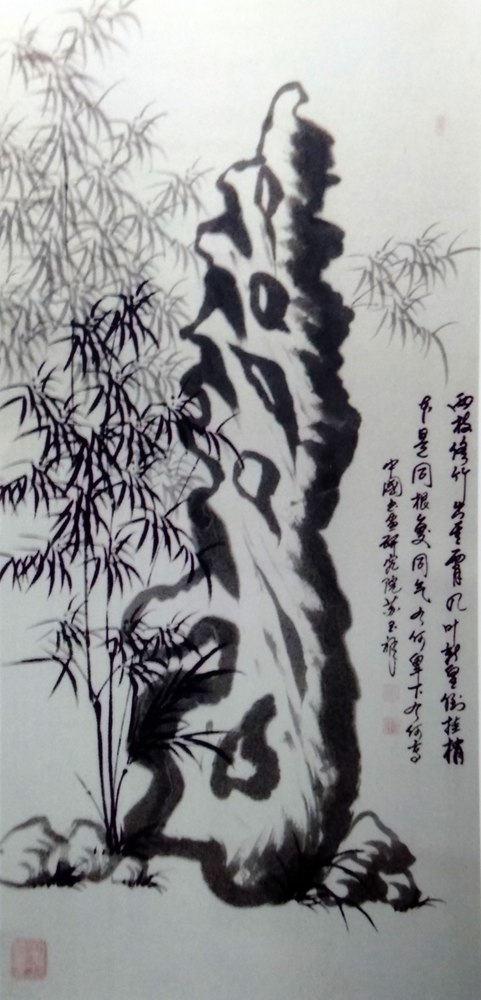 两枝修竹出重霄几叶新篁倒挂梢
本是同根复同气有何卑下有何高
中国书画研究院